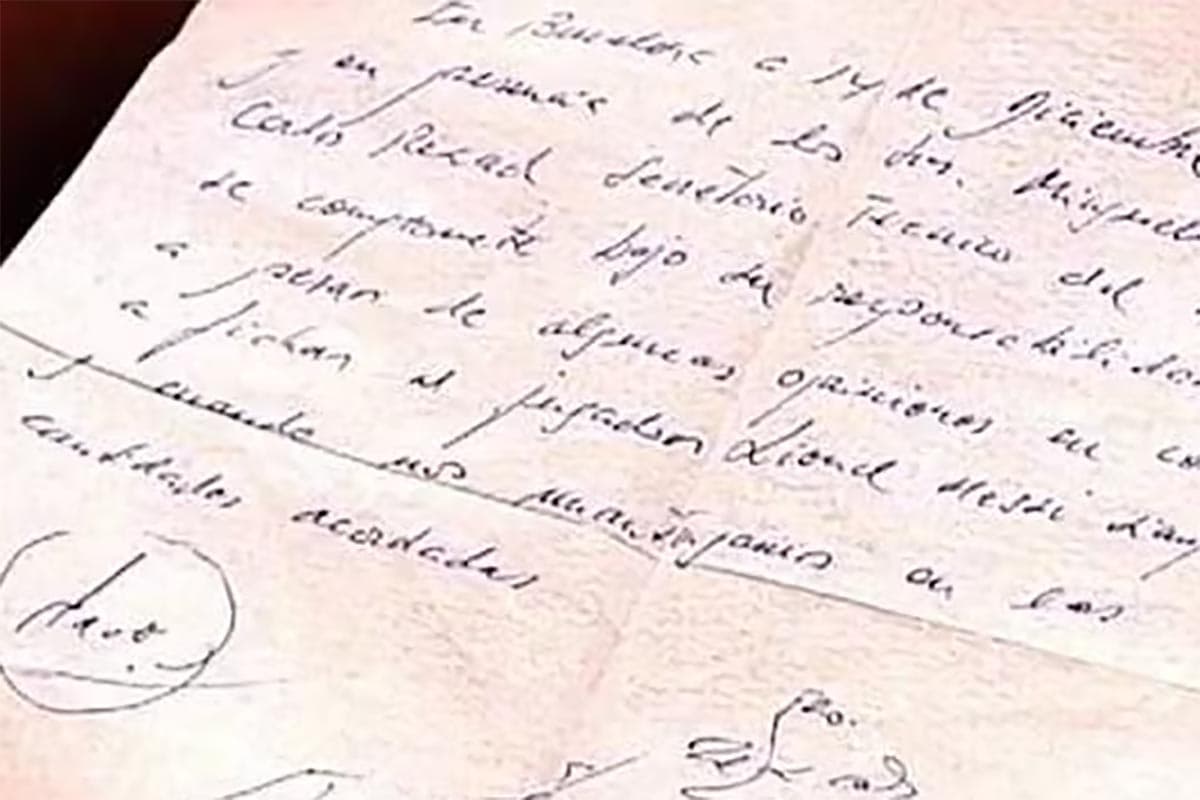 En Barcelona a 14 de Diciembre
y en presencia de los Srs. Minguella
Carlos Rexach Secretario Tecnico del
se compromete bajo su responsabilidad
a pesar de algunas opiniones en
a fichar al jugador Lionel Messi
y cuando nos mantengamos en las
cantidades acordadas